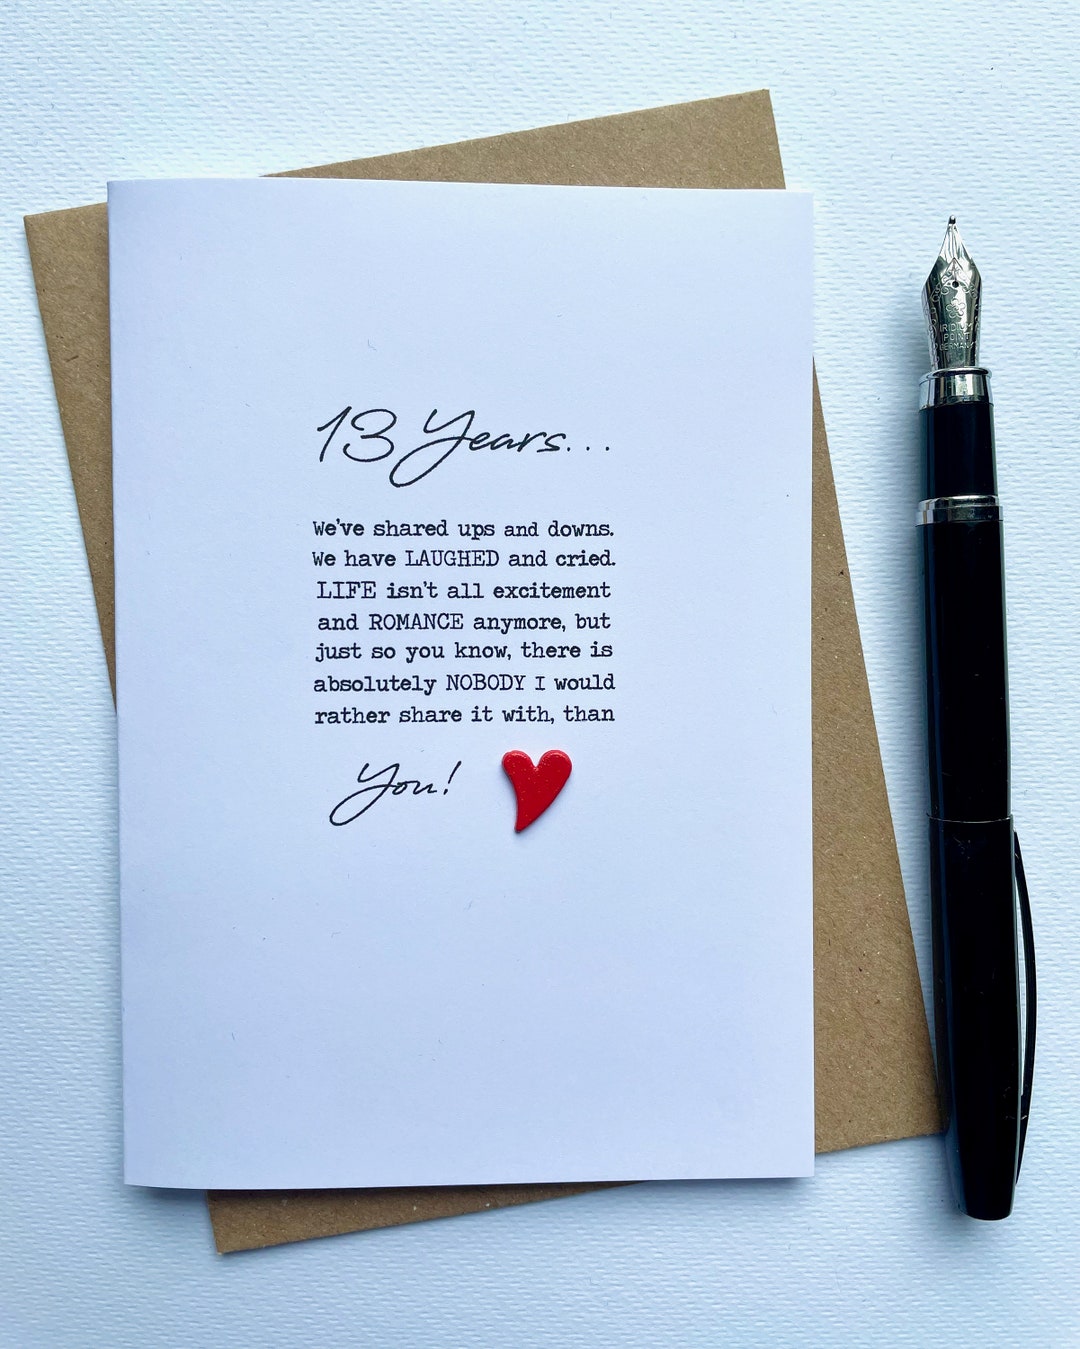 13 Years...
We've shared ups and downs.
We have LAUGHED and cried.
LIFE isn't all excitement
and ROMANCE anymore, but
just so you know, there is
absolutely NOBODY I would
rather share it with, than
You!
IRIDIUM
POINT
GERMANY